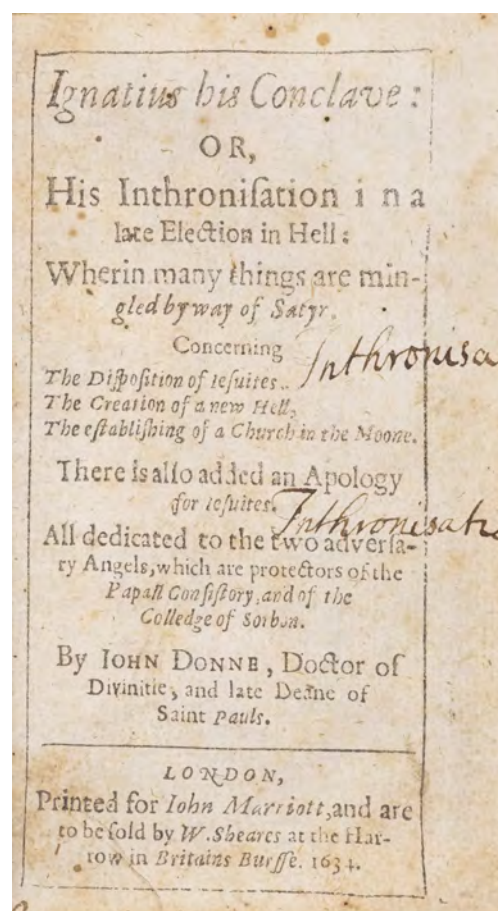 Ignatius his Conclave:
OR,
His Inthroniſation in a
late Election in Hell:
Wherin many things are min-
gled by way of Satyr.
Concerning
Inthronisa
The Diſpoſition of Ieſuites.
The Creation of a new Hell,
The eſtabliſhing of a Church in the Moone.
There is alſo added an Apology
for Ieſuites.
Inthronisati
All dedicated to the two adverſa-
ry Angels, which are protectors of the
Papall Conſiſtory, and of the
Colledge of Sorbon.
By IOHN DONNE, Doctor of
Divinitie, and late Deane of
Saint Pauls.
LONDON,
Printed for Iohn Marriott, and are
to be ſold by W. Sheares at the Har-
row in Britains Burſſe. 1634.